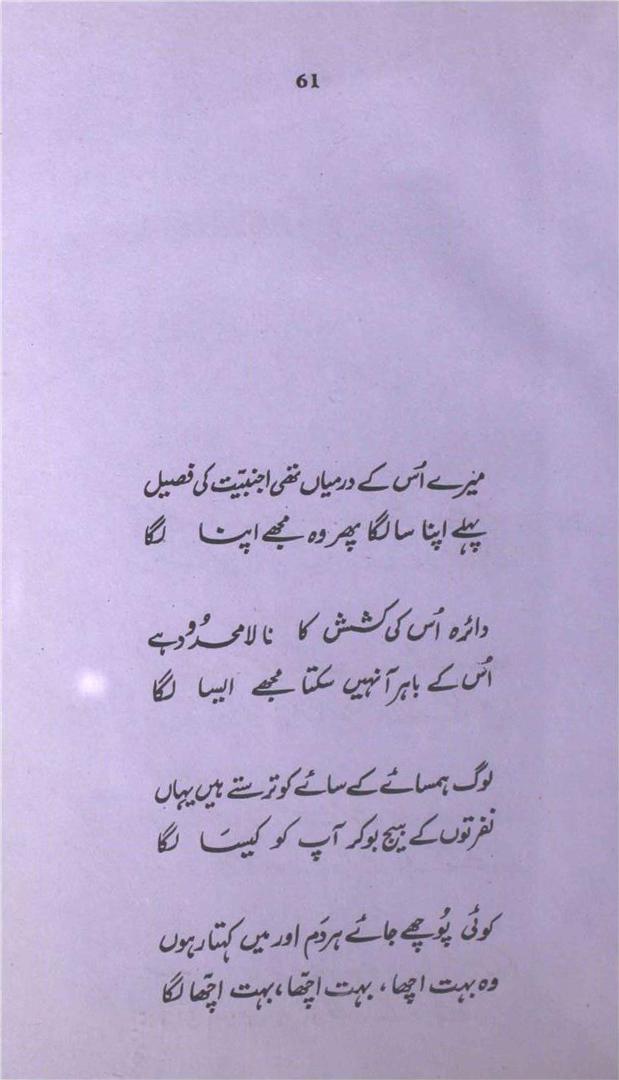 61
میرے اُس کے درمیاں تھی اجنبیّت کی فصیل
پہلے اپنا سا لگا پھر وہ مجھے اپنا لگا
دائرہ اُس کی کشش کا نا لامحدُود ہے
اُس کے باہر آ نہیں سکتا مجھے ایسا لگا
لوگ ہمسائے کے سائے کو ترستے ہیں یہاں
نفرتوں کے بیج بو کر آپ کو کیسَا لگا
کوئی پُوچھے جائے ہر دَم اور میں کہتا رہوں
وہ بہت اچھا، بہت اچّھا، بہت اچّھا لگا